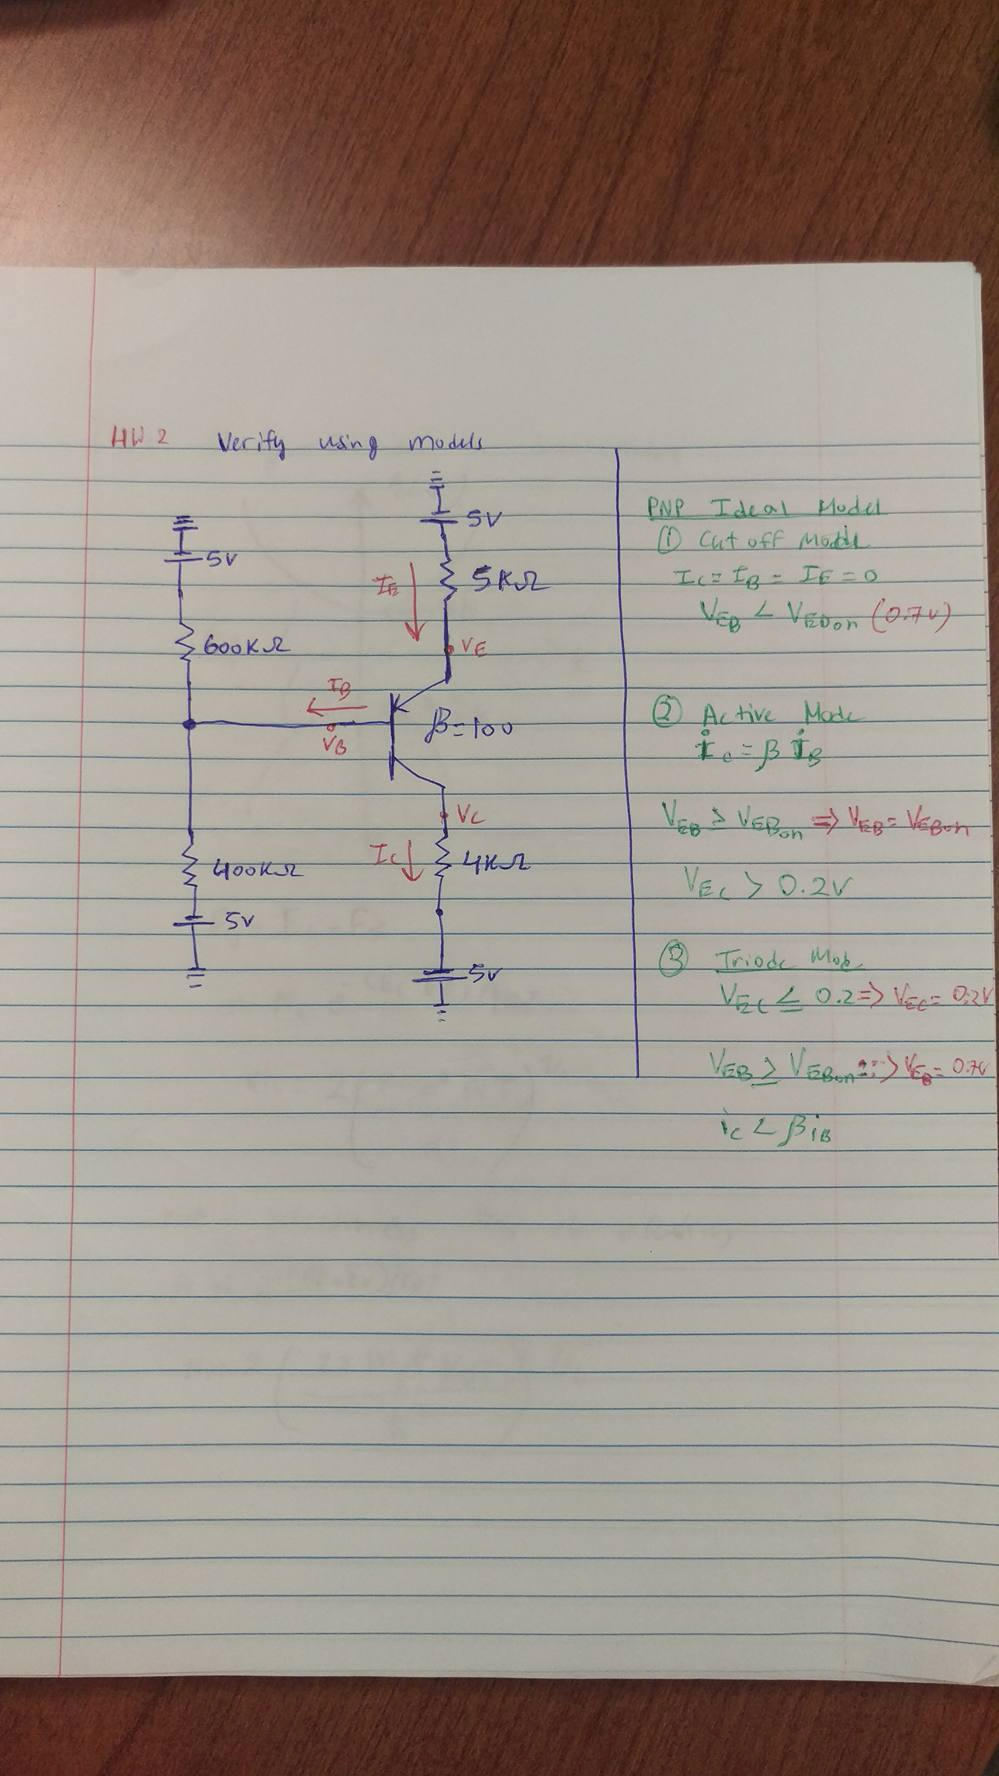 HW 2 Verify using models
5V
5V
IE
5KΩ
600KΩ
VE
IB
VB
β=100
VC
IC
4KΩ
400KΩ
5V
5V
PNP Ideal Model
① Cut off Mode
IC = IB = IE = 0
VEB < VEBon (0.7V)
② Active Mode
iC = β iB
VEB ≥ VEBon => VEB = VEBon
VEC > 0.2V
③ Triode Mode
VEC ≤ 0.2 => VEC = 0.2V
VEB ≥ VEBon => VEB = 0.7V
iC < βiB